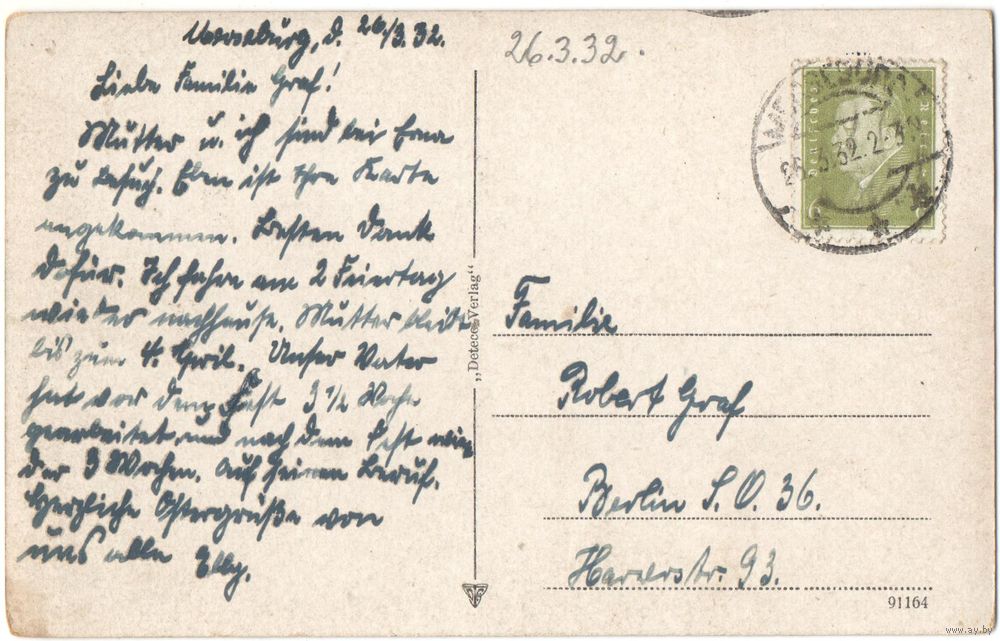 d. 26/3.32.
Liebe Familie Graf!
Mutter u. ich sind bei Erna
zu Besuch. Eben ist Ihre Karte
angekommen. Besten Dank
dafür. Ich fahre am 2 Feiertag
wieder nachhause. Mutter bleibt
bis zum 4. April. Unser Vater
hat vor dem Fest 3 1/2 Woche
gearbeitet und nach dem Fest wie
der 3 Wochen. Auf seinen Beruf.
Herzliche Ostergrüße von
uns alle Elly.
26.3.32.
26.3.32.2-3
Deutsches Reich
6
6
„Deteco-Verlag“
Familie
Robert Graf
Berlin S.O. 36.
93.
91164
www.ay.by